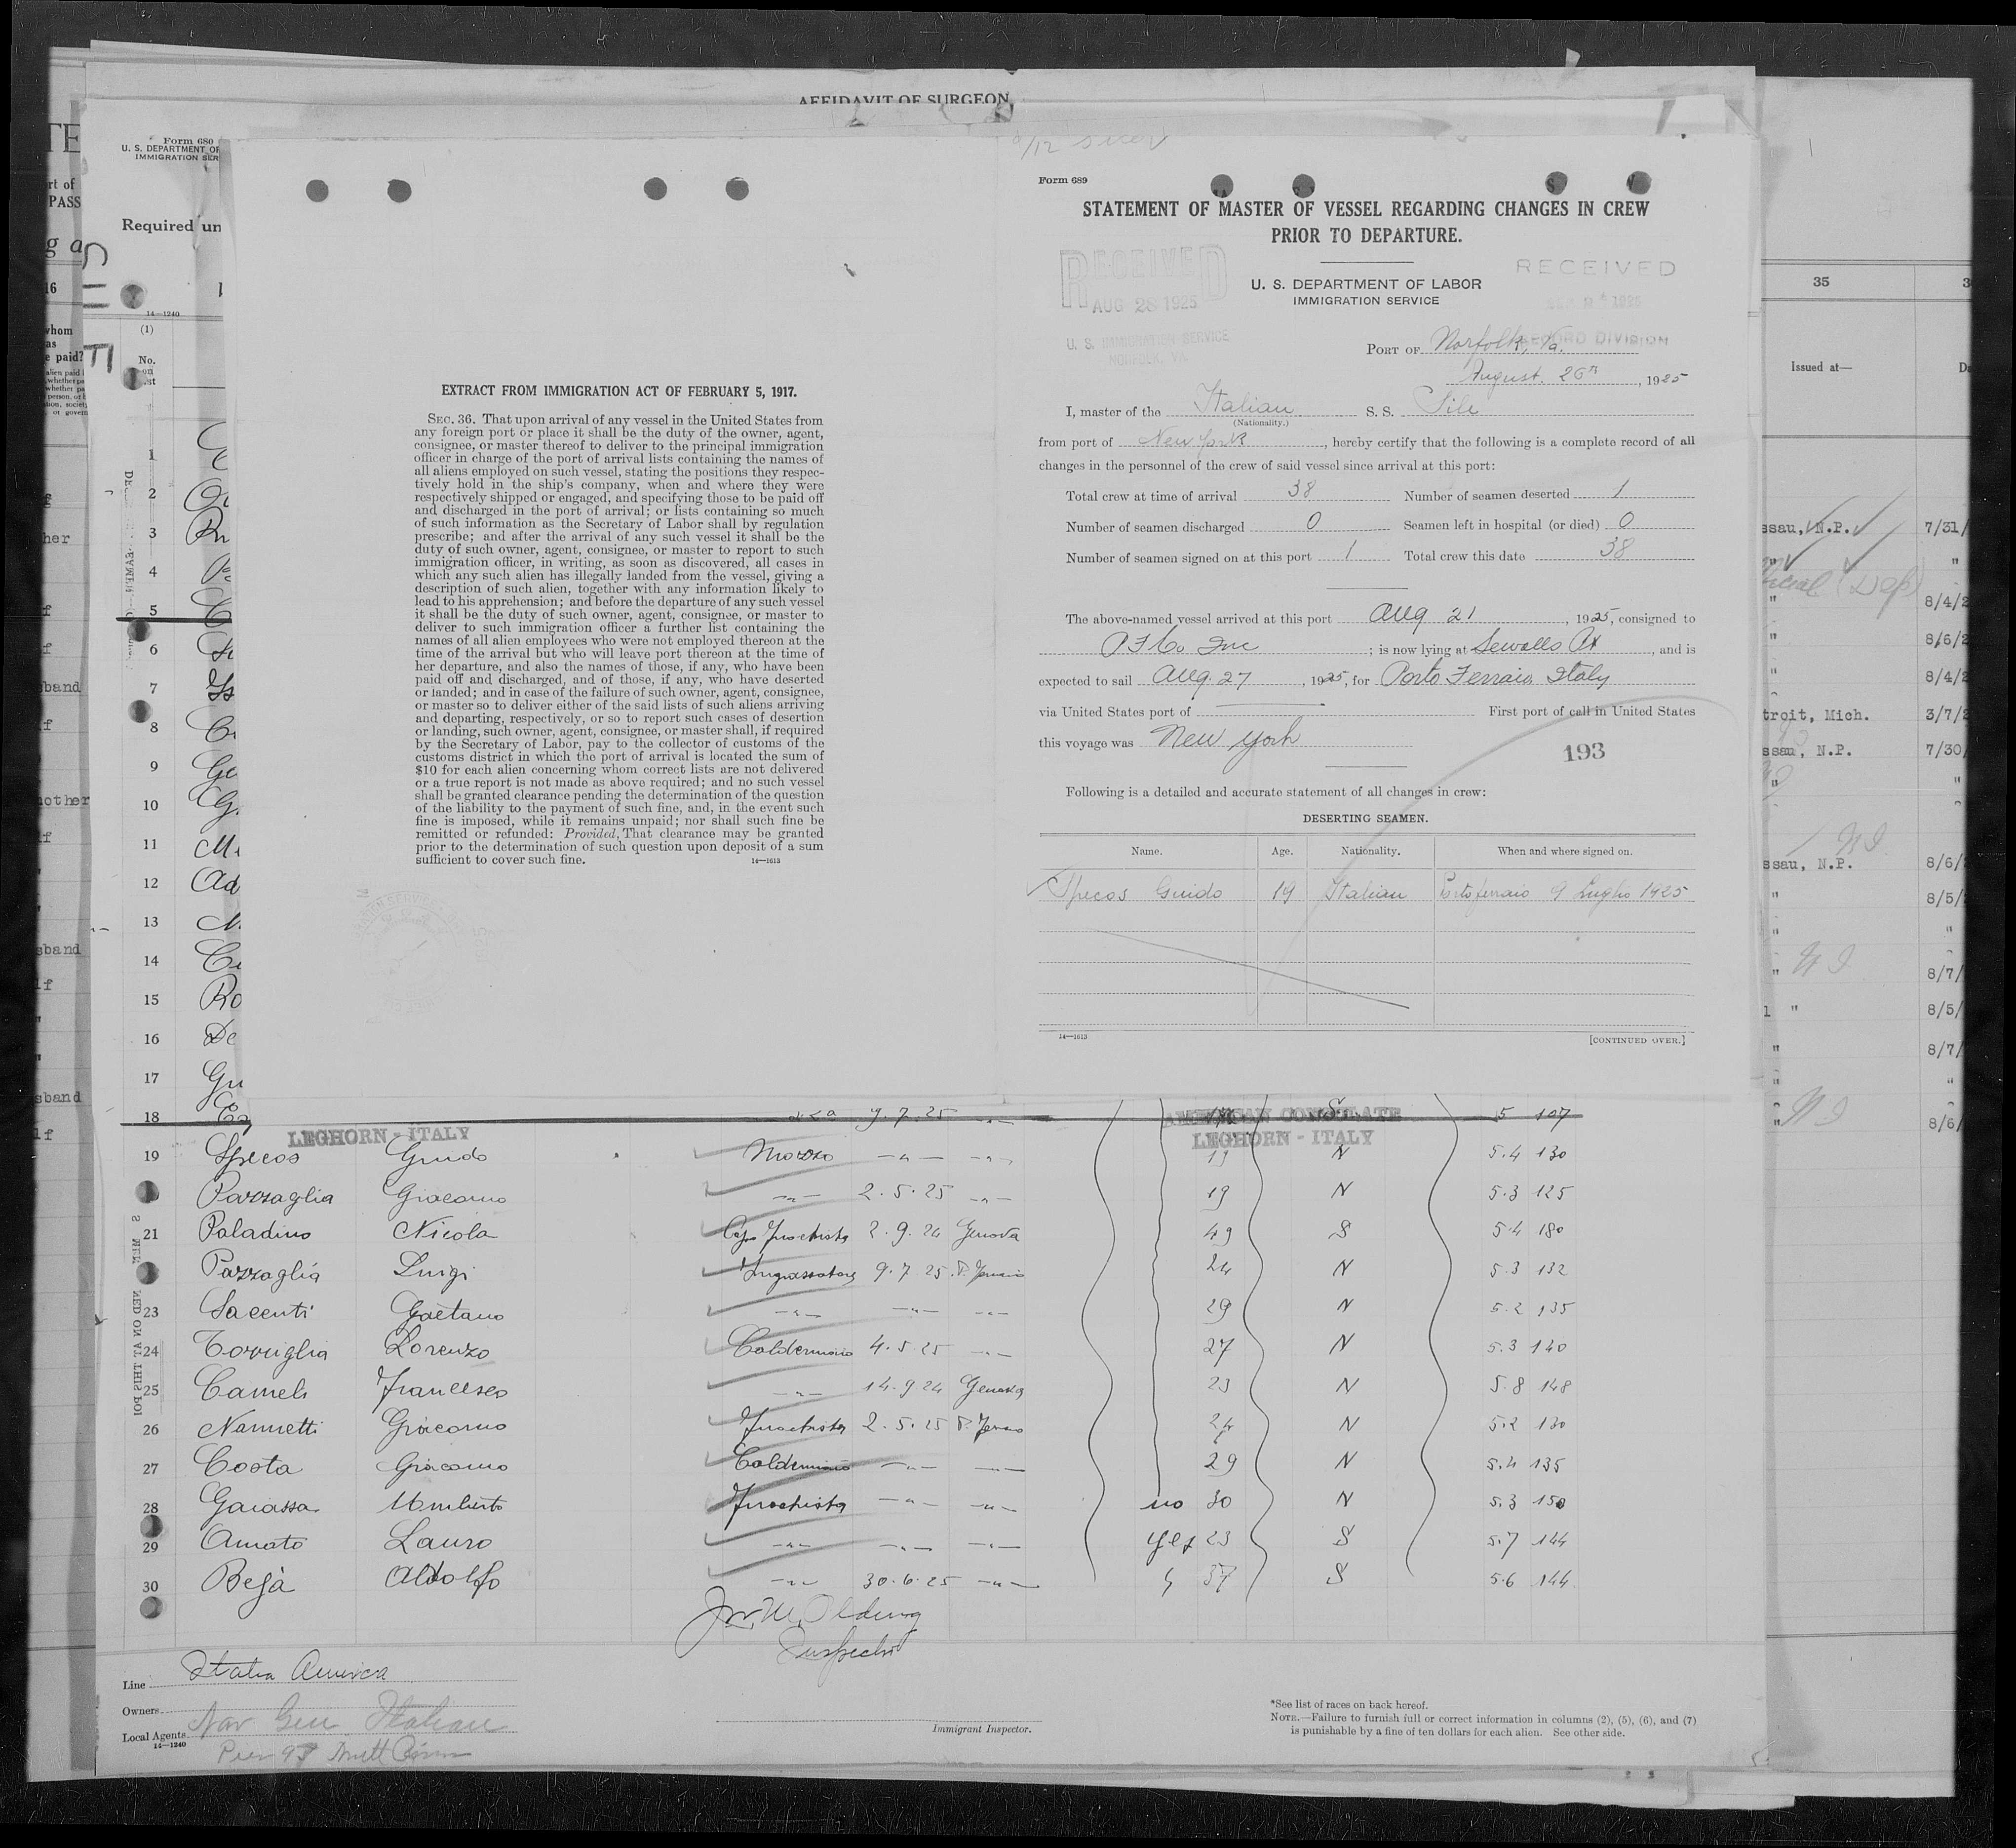 AFFIDAVIT OF SURGEON
Form 680
U. S. DEPARTMENT OF
IMMIGRATION SER
Required un
14—1240
(1)
No.
on
1
2
3
4
5
6
7
8
9
10
11
12
13
14
15
16
17
18
EXTRACT FROM IMMIGRATION ACT OF FEBRUARY 5, 1917.
SEC. 36. That upon arrival of any vessel in the United States from
any foreign port or place it shall be the duty of the owner, agent,
consignee, or master thereof to deliver to the principal immigration
officer in charge of the port of arrival lists containing the names of
all aliens employed on such vessel, stating the positions they respec-
tively hold in the ship's company, when and where they were
respectively shipped or engaged, and specifying those to be paid off
and discharged in the port of arrival; or lists containing so much
of such information as the Secretary of Labor shall by regulation
prescribe; and after the arrival of any such vessel it shall be the
duty of such owner, agent, consignee, or master to report to such
immigration officer, in writing, as soon as discovered, all cases in
which any such alien has illegally landed from the vessel, giving a
description of such alien, together with any information likely to
lead to his apprehension; and before the departure of any such vessel
it shall be the duty of such owner, agent, consignee, or master to
deliver to such immigration officer a further list containing the
names of all alien employees who were not employed thereon at the
time of the arrival but who will leave port thereon at the time of
her departure, and also the names of those, if any, who have been
paid off and discharged, and of those, if any, who have deserted
or landed; and in case of the failure of such owner, agent, consignee,
or master so to deliver either of the said lists of such aliens arriving
and departing, respectively, or so to report such cases of desertion
or landing, such owner, agent, consignee, or master shall, if required
by the Secretary of Labor, pay to the collector of customs of the
customs district in which the port of arrival is located the sum of
$10 for each alien concerning whom correct lists are not delivered
or a true report is not made as above required; and no such vessel
shall be granted clearance pending the determination of the question
of the liability to the payment of such fine, and, in the event such
fine is imposed, while it remains unpaid; nor shall such fine be
remitted or refunded: Provided, That clearance may be granted
prior to the determination of such question upon deposit of a sum
sufficient to cover such fine. 14—1613
Form 689
STATEMENT OF MASTER OF VESSEL REGARDING CHANGES IN CREW
PRIOR TO DEPARTURE.
RECEIVED
AUG 28 1925
U. S. IMMIGRATION SERVICE
NORFOLK, VA.
U. S. DEPARTMENT OF LABOR
IMMIGRATION SERVICE
RECEIVED
1925
RECORD DIVISION
PORT OF Norfolk, Va.
August. 26th, 1925
I, master of the Italian S. S. Sile
(Nationality.)
from port of New York, hereby certify that the following is a complete record of all
changes in the personnel of the crew of said vessel since arrival at this port:
Total crew at time of arrival 38 Number of seamen deserted 1
Number of seamen discharged 0 Seamen left in hospital (or died) 0
Number of seamen signed on at this port 1 Total crew this date 38
The above-named vessel arrived at this port Aug 21, 1925, consigned to
Inc; is now lying at Sewalls Pt, and is
expected to sail Aug. 27, 1925, for Porto Ferraio Italy
via United States port of First port of call in United States
this voyage was New York
193
Following is a detailed and accurate statement of all changes in crew:
DESERTING SEAMEN.
Name. Age. Nationality. When and where signed on.
Specos Guido 19 Italian Portoferraio 9 Luglio 1925
14—1613 [CONTINUED OVER.]
9.7.25 5 107
AMERICAN CONSULATE
LEGHORN - ITALY LEGHORN - ITALY
19 Specos Guido Mozzo —"— —"— 19 N 5.4 130
Pazzaglia Giacomo —"— 2.5.25 —"— 19 N 5.3 125
21 Paladino Nicola Capo Fuochista 2.9.24 Genova 49 S 5.4 180
Pazzaglia Luigi Ingrassatore 9.7.25 P. Ferraio 24 N 5.3 132
23 Sacenti Gaetano —"— —"— —"— 29 N 5.2 135
24 Torriglia Lorenzo Calderinaio 4.5.25 —"— 27 N 5.3 140
25 Cameli Francesco —"— 14.9.24 Genova 23 N 5.8 148
26 Nannetti Giacomo Fuochista 2.5.25 P. Ferraio 24 N 5.2 130
27 Costa Giacomo Calderinaio —"— —"— 29 N 5.4 135
28 Gaiassa Umberto Fuochista —"— —"— no 30 N 5.3 150
29 Amato Lauro —"— —"— —"— yes 23 S 5.7 144
30 Bejà Adolfo —"— 30.6.25 —"— 37 S 5.6 144
Inspector
Line Italia America
Owners Nav Gen Italian
Local Agents
14—1240
Pier 95
Immigrant Inspector.
*See list of races on back hereof.
NOTE.—Failure to furnish full or correct information in columns (2), (5), (6), and (7)
is punishable by a fine of ten dollars for each alien. See other side.
35
Issued at—
ssau, N.P. 7/31/
" 8/4/2
" 8/6/2
" 8/4/2
troit, Mich. 3/7/2
ssau, N.P. 7/30/
ssau, N.P. 8/6/
" 8/5/
" 8/7/
" 8/5/
" 8/7/
" 8/6/